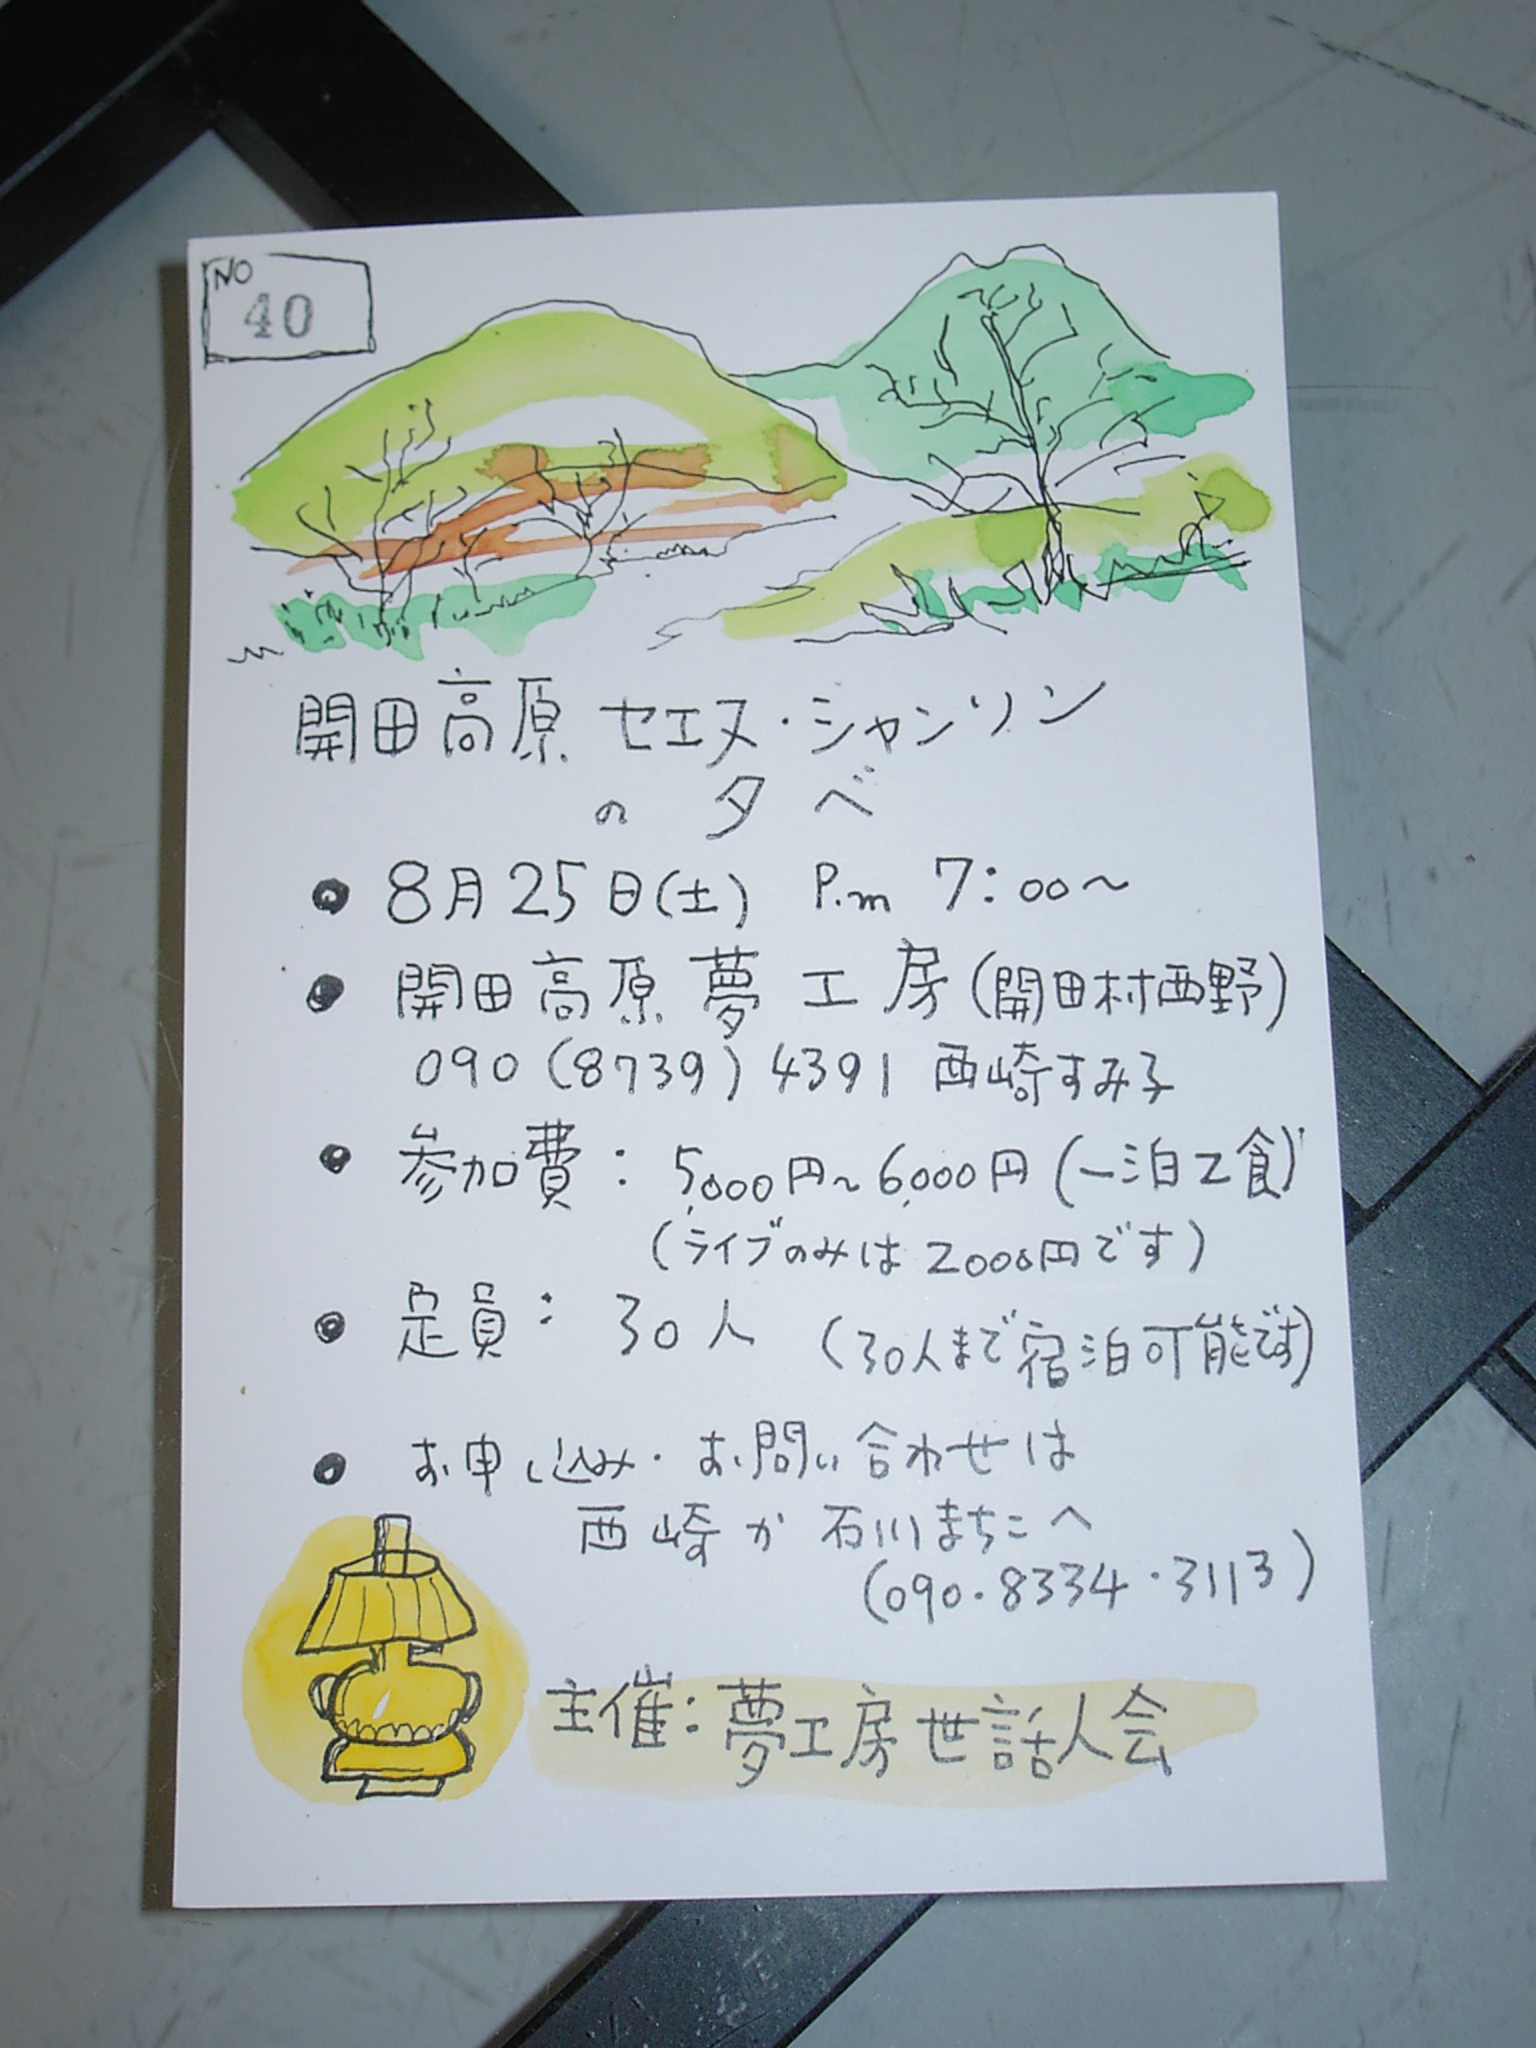 NO
40
開田高原 セエヌ・シャンソン
の 夕べ
● 8月25日(土) P.m 7:00～
● 開田高原夢工房(開田村西野)
090(8739)4391 西崎すみ子
● 参加費: 5,000円～6,000円(一泊2食)
(ライブのみは2000円です)
● 定員: 30人 (30人まで宿泊可能です)
● お申し込み・お問い合わせは
西崎か石川まちこへ
(090・8334・3113)
主催:夢工房世話人会